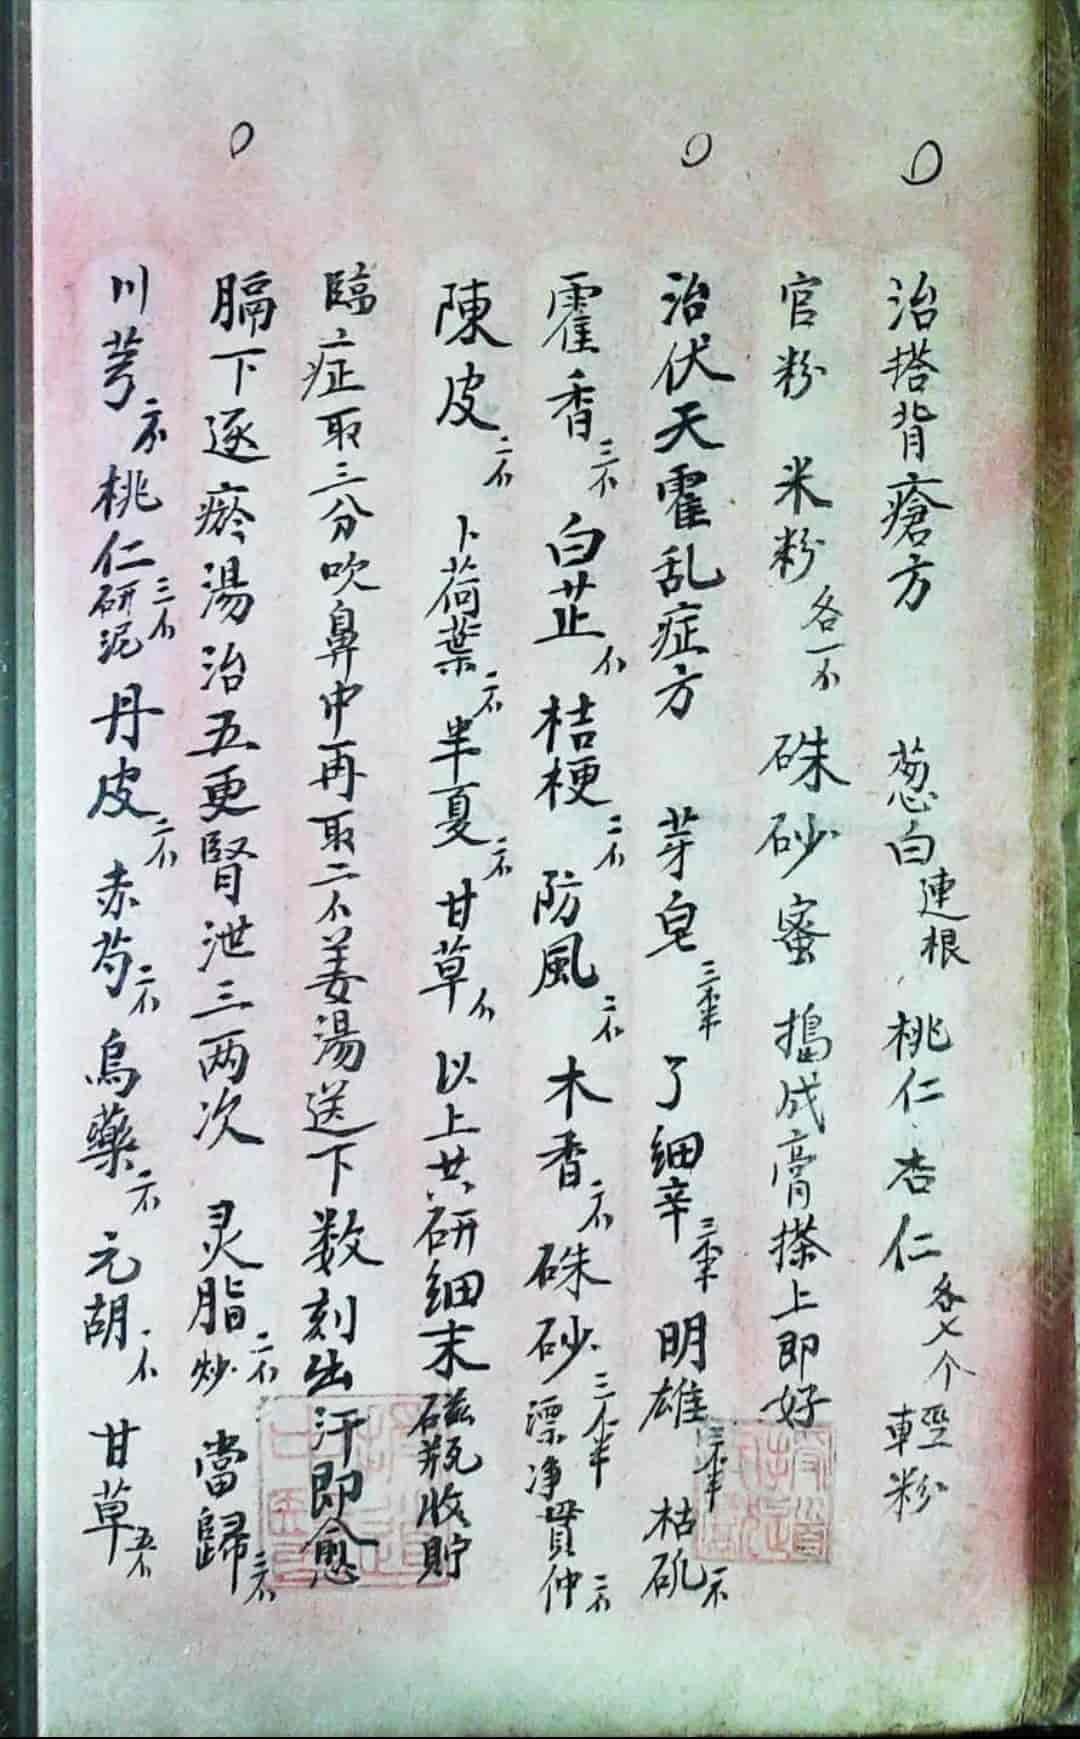 治搭背瘡方 葱白連根 桃仁 杏仁各七个 輕粉
官粉 米粉各一不 硃砂 蜜 搗成膏搽上即好
治伏天霍乱症方 芽皂三不半 了細辛三不半 明雄三不半 枯矾一不
霍香三不 白芷不 桔梗二不 防風二不 木香二不 硃砂三不半漂净 貫仲二不
陳皮二不 卜荷葉二不 半夏二不 甘草不 以上共研細末磁瓶收貯
臨症取三分吹鼻中再取二不姜湯送下数刻出汗即愈
膈下逐瘀湯治五更腎泄三两次 灵脂炒二不 當歸三不
川芎二不 桃仁研泥三不 丹皮二不 赤芍二不 烏藥二不 元胡一不 甘草五不